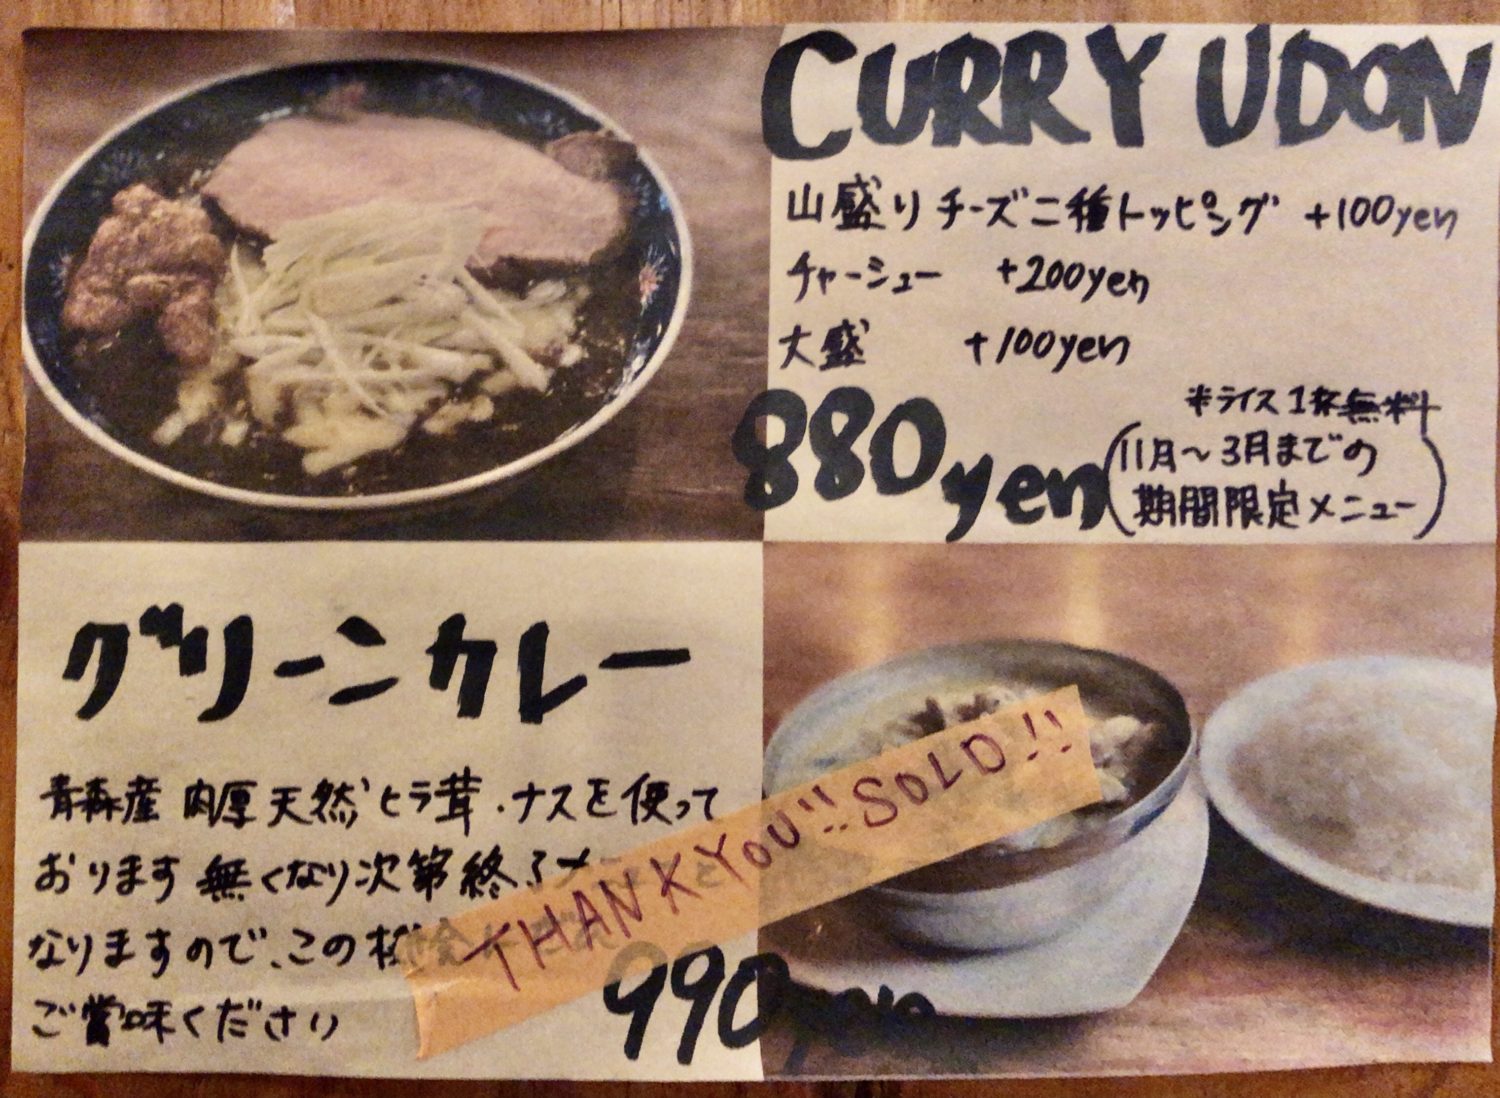 CURRY UDON
山盛りチーズ二種トッピング +100yen
チャーシュー +200yen
大盛 +100yen
*ライス1杯無料
880yen
(11月〜3月までの
期間限定メニュー)
グリーンカレー
青森産 肉厚天然ヒラ茸・ナスを使って
おります 無くなり次第終了メニューと
なりますので、この機会に
ご賞味ください
990yen
THANK YOU!! SOLD!!